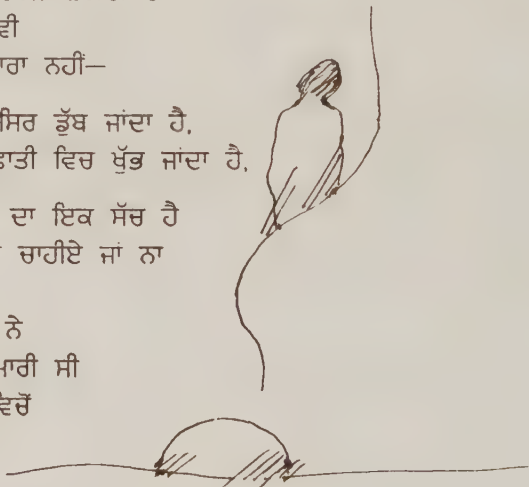 ਵੀ
ਨਹੀਂ—
ਸਿਰ ਡੁੱਬ ਜਾਂਦਾ ਹੈ,
ਵਿਚ ਖੁੱਭ ਜਾਂਦਾ ਹੈ,
ਦਾ ਇਕ ਸੱਚ ਹੈ
ਚਾਹੀਏ ਜਾਂ ਨਾ
ਨੇ
ਸੀ